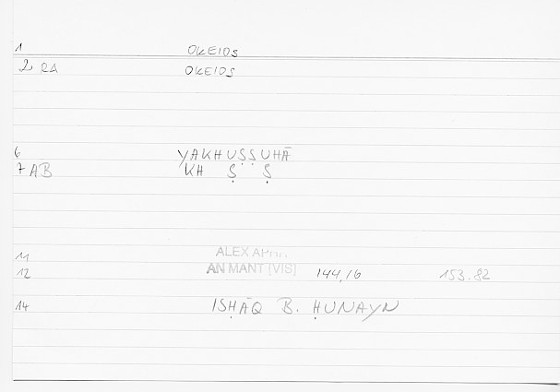 1 OKEIOS
2 RA OKEIOS
6 YAKHUṢṢUHĀ
7 AB KH Ṣ Ṣ
11 ALEX APHR.
12 AN MANT [VIS] 144,16 153.82
14 ISḤĀQ B. ḤUNAYN